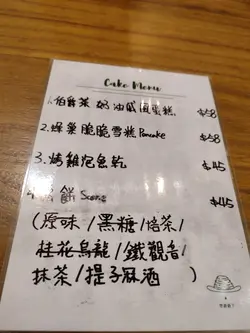 Cake Menu
1. 伯爵茶 奶油戚風蛋糕 $58
2. 蜂巢脆脆雪糕 Pancake $58
3. 烤雞泡魚乾 $45
鬆餅 Scone $45
(原味/黑糖/焙茶/
桂花烏龍/鐵觀音/
抹茶/提子麻酒)